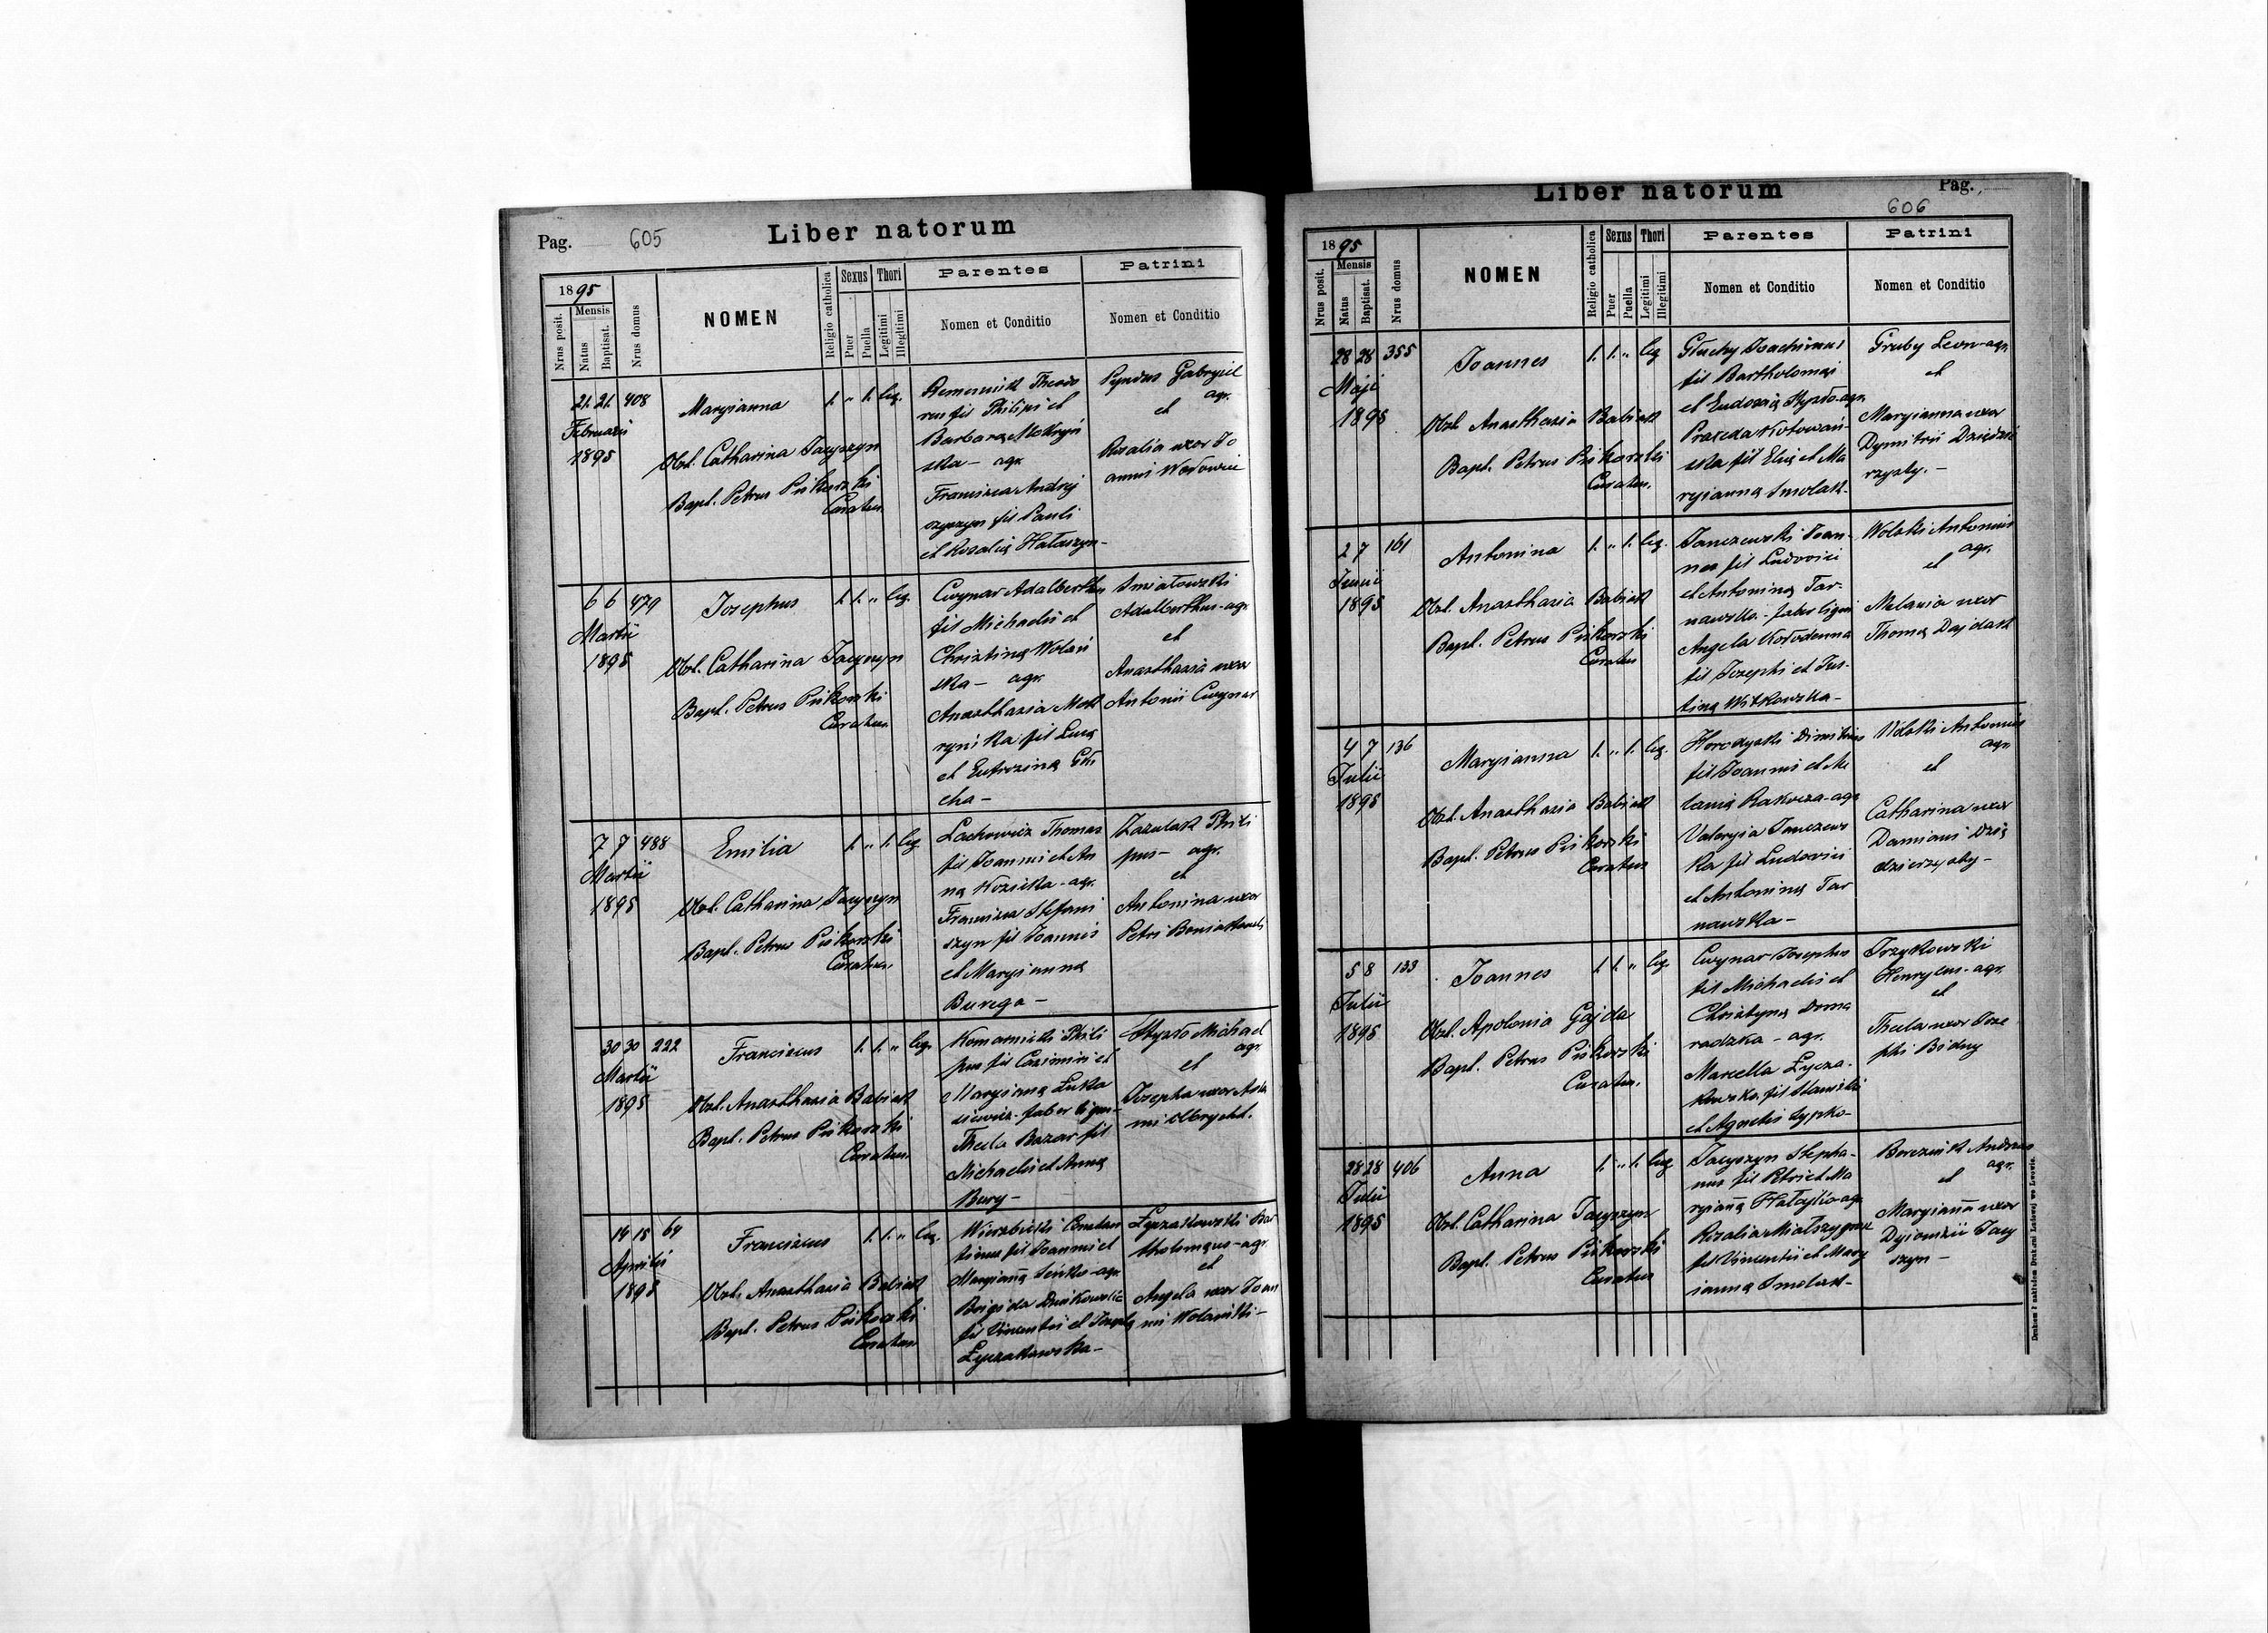 Pag. 605
Liber natorum
1895
Nrus posit.
Mensis
Natus
Baptisat.
Nrus domus
NOMEN
Religio catholica
Sexus
Puer
Puella
Thori
Legitimi
Illegitimi
Parentes
Nomen et Conditio
Patrini
Nomen et Conditio
21. 21. 408
Februarii
1895
Maryianna
Obst. Catharina Jacyszyn
Bapt. Petrus Piskorski
Curatus
1. " 1. leg.
Remeniuk Theodo
rus fil Philipi et
Barbara Mokryń
ska - agr.
Francisca Andrej
szyszyn fil Pauli
et Rosalią Hałaszyn-
Pyndus Gabryiel
agr.
et
Rosalia uxor Jo
annis Wodowic
6 6 479
Martii
1895
Josephus
Obst. Catharina Jacyszyn
Bapt. Petrus Piskorski
Curatus
1. 1. " leg.
Cwynar Adalberthus
fil Michaelis et
Christina Wolań
ska - agr.
Anasthasia Mok
ryńska fil Luca
et Eufrozina
cha -
Smiałowski
Adalberthus-agr
et
Anasthasia uxor
Antonii Cwynar
7 7 488
Martii
1895
Emilia
Obst. Catharina Jacyszyn
Bapt. Petrus Piskorski
Curatus.
1. " 1. leg
Lachowicz Thomas
fil Joannis et An
na Kozicka - agr.
Francisca Stefani
szyn fil Joannis
et Maryianna
Burega -
Zazulak Phili
pus - agr.
et
Antonina uxor
Petri
30 30 222
Martii
1895
Franciscus
Obst. Anasthasia Babiak
Bapt. Petrus Piskorski
Curatus.
1. 1. " leg.
Komarnicki Phili
pus fil Casimiri et
Maryianna Luka
siewicz - faber lignar-
Thecla Bazar fil
Michaelis et Anna
Bury -
Hyzło Michael
agr.
et
Josepha uxor Ada
mi Olbrycht.
14 15 64
Aprilis
1895
Franciscus
Obst. Anasthasia Babiak
Bapt. Petrus Piskorski
Curatus
1. 1. " leg.
Wierzbicki Constan
tinus fil Joannis et
Maryiana Seńko-agr.
Brigida
fil Vincentii et Josepha
Łyczakowska -
Łyczakowski Bar
tholomeus - agr.
et
Angela uxor Joan
nis Wolański -
Liber natorum
Pag.
606
1895
Nrus posit.
Mensis
Natus
Baptisat.
Nrus domus
NOMEN
Religio catholica
Sexus
Puer
Puella
Thori
Legitimi
Illegitimi
Parentes
Nomen et Conditio
Patrini
Nomen et Conditio
28 28 355
Maji
1895
Joannes
Obst Anasthasia Babiak
Bapt. Petrus Piskorski
Curatus.
1. 1. " leg
Głuchy Joachimus
fil Bartholomei
et Eudoxia Hyzło-agr
Praxeda Kotowań-
ska fil Elia et Ma
ryianna Smolak-
Gruby Leon-agr
et
Maryianna uxor
Dymitrii Dziedzi
rzysty. -
2 7 161
Junii
1895
Antonina
Obst. Anasthasia Babiak
Bapt. Petrus Piskorski
Curatus
1. " 1. leg.
Janczewski Joan-
nes fil Ludovici
et Antonina Tar-
nawska - faber lignar
Angela Kołodenna
fil Josephi et Jus-
tina Witkowska -
Wolski Antonius
agr.
et
Melania uxor
Thoma Dajdak
4 7 136
Julii
1895
Maryianna
Obst. Anasthasia Babiak
Bapt. Petrus Piskorski
Curatus
1. " 1. leg.
Horodyski Dimitrius
fil Joannis et Me
lania Rakocza-agr
Valeryia Janczews
ka fil Ludovici
et Antonina Tar
nawska -
Wolski Antonius
agr
et
Catharina uxor
Damiani Dzie
dzierzysty -
5 8 133
Julii
1895
Joannes
Obst. Apolonia Gajda
Bapt. Petrus Piskorski
Curatus.
1. 1. " leg
Cwynar Josephus
fil Michaelis et
Christyna Doma
radzka - agr.
Marcella Łycza-
kowska fil Stanislai
et Agnetis Łypko-
Trzykowski
Henrycus - agr.
et
Thecla uxor Jose
phi Bidny
28 28 406
Julii
1895
Anna
Obst. Catharina Jacyszyn
Bapt. Petrus Piskorski
Curatus
1. " 1. leg
Jacyszyn Stepha-
nus fil Petri et Ma
ryianna Hałajko-agr
Rosalia
fil Vincentii et Mary
ianna Smolak -
Berezniuk Andreas
agr.
et
Maryianna uxor
Dyionizii Jacy
szyn -
Drukiem i nakładem Drukarni Ludowej we Lwowie.